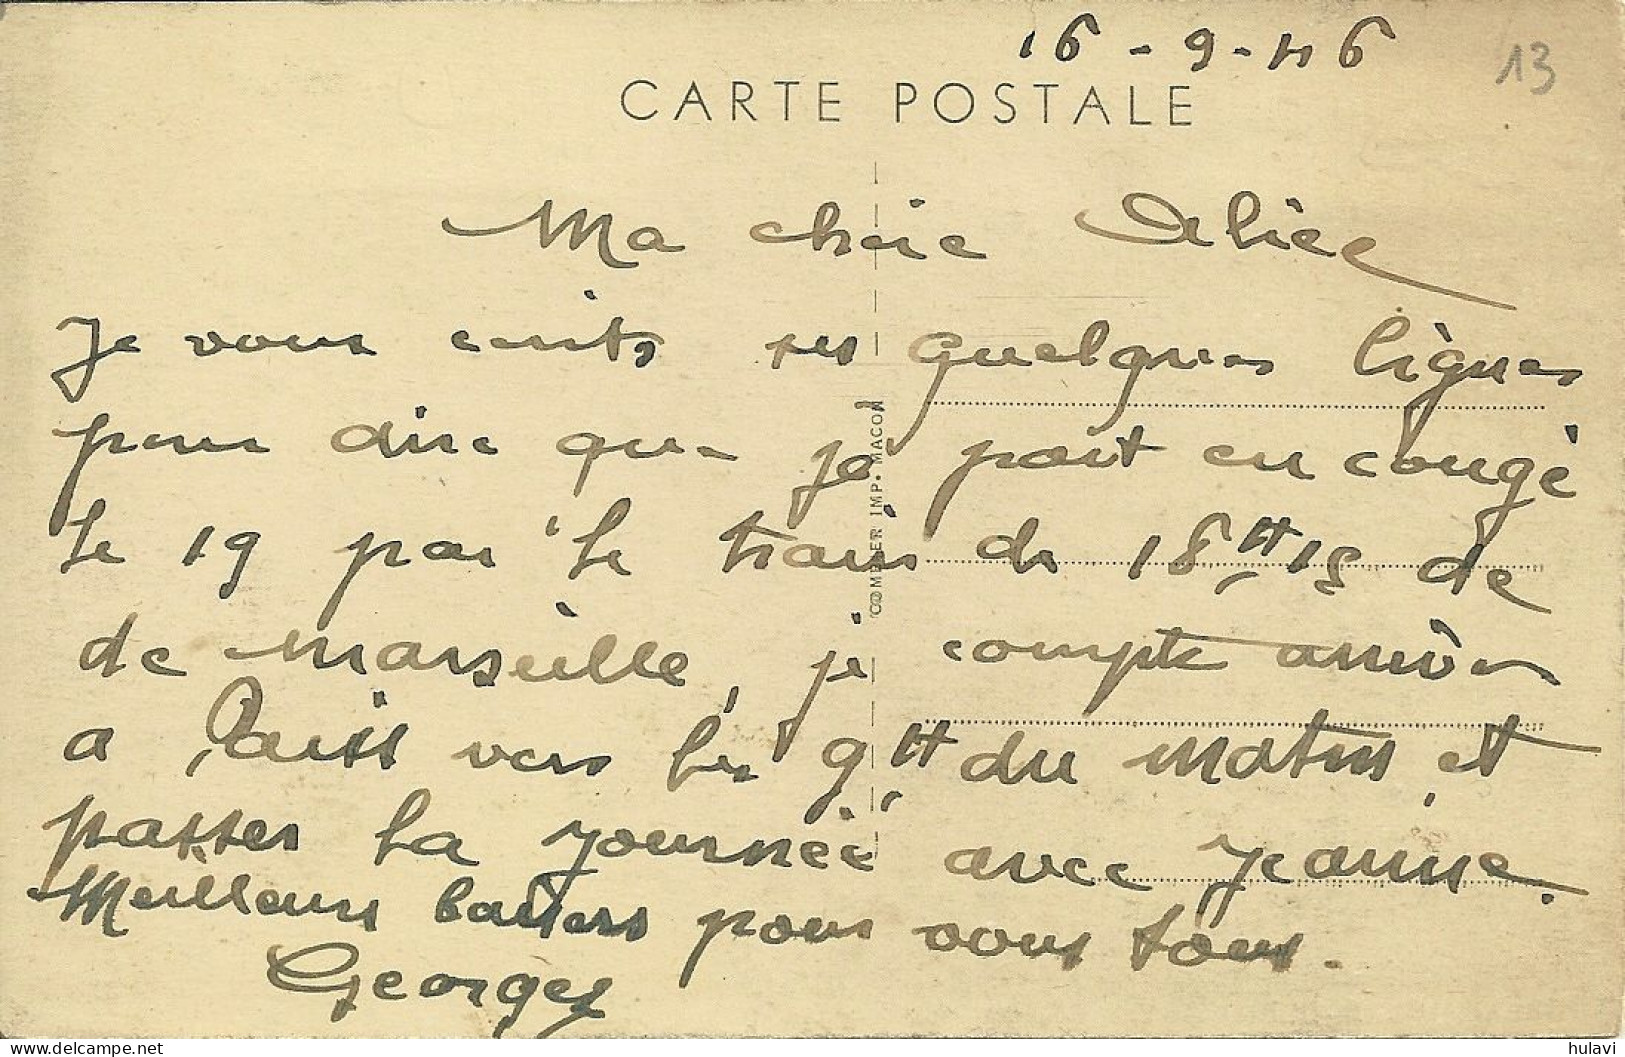 16-9-46
13
CARTE POSTALE
Ma chère Alice
Je vous ecrits ses quelques lignes
pour dire que je part en congé
le 19 par le train de 18H15 de
de marseille, je compte arriver
a Paris vers les 9H du matin et
passer la journée avec Jeanine.
Meilleurs baisers pour vous tous.
Georges
COMBIER IMP. MACON
hulavi